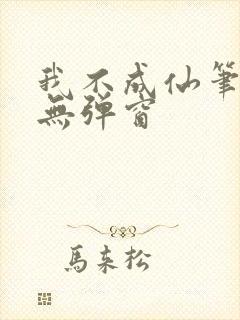 我不成仙筆
無弹窗
馬来松